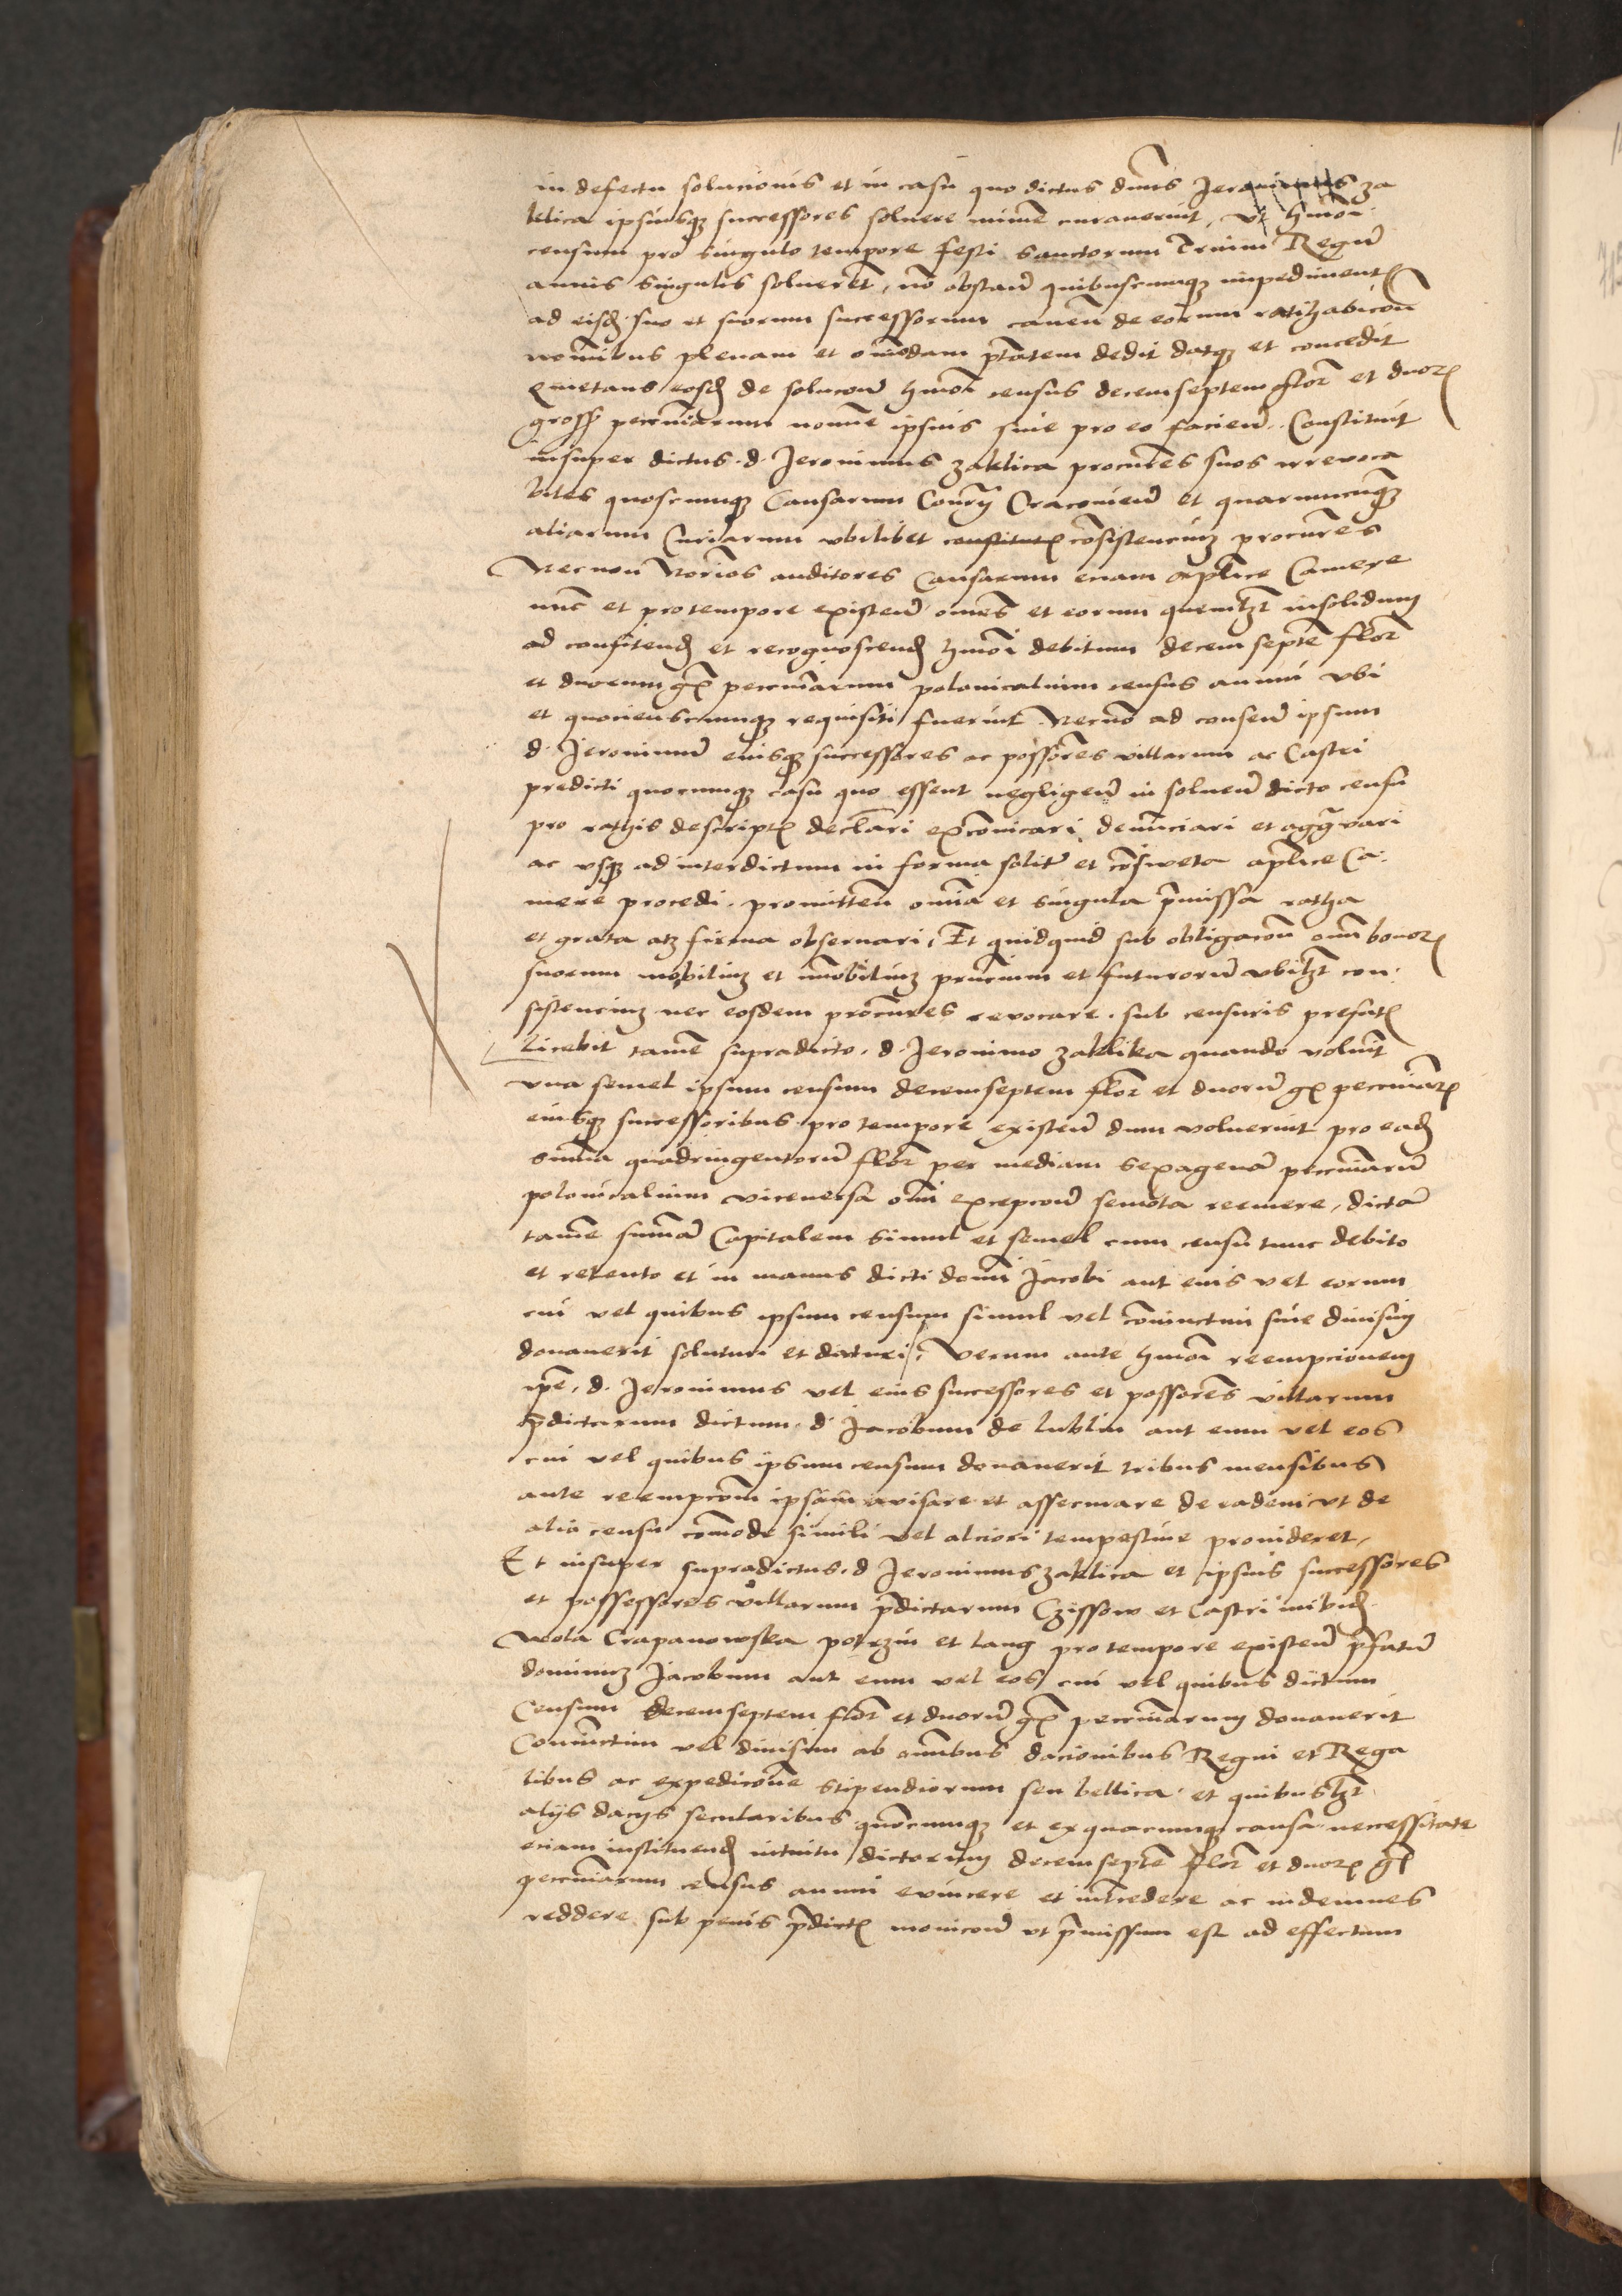 in defectu solucionis et in casu quo dictus dnus Jeronimus za
klica ipsiusq3 successores soluere minime curauerint, vt hmoi
censum pro singulo tempore festi sanctorum Trium Regu
annis singulis soluerent, no obstan quibuscumq3 impediment
ad eisd suo et suorum successorum de eorum ratihabicon
nominibus plenam et omodam ptatem dedit datq3 et concedit
Quietans eosd de solucon hmoi census decemseptem flor et duor
gross pecuniarum nomine ipsius siue pro eo facien. Constituit
insuper dictus d. Jeronimus zaklica procures suos irreuoca
biles quoscumq3 Causarum Cracouien et quarumcunq3
aliarum Curiarum vbilibet constitut cosistencium procures
Necnon Norios auditores Causarum eciam aplice Camere
nuc et pro tempore existen omes et eorum quemlzt insolidum
ad confitend et recognoscend hmoi debitum decem septe flor
et duorum gr pecuniarum polonicalium census annui vbi
et quocienscumq3 requisiti fuerint. Necno ad consen ipsum
d. Jeronimu eiusq3 successores ac possores villarum ac Castri
predicti quocumq3 casu quo essent negligen in soluen dicto censu
pro rathis descript declari excoicari denunciari et aggrauari
ac vsq3 ad interdictum in forma solita et cosweta aplice Ca
mere procedi. promitten omia et singula pmissa ratha
et grata atq3 firma obseruari, Et quidquid sub obligacon oim bonor
suorum mobilium et imobilium pncium et futuroru vbilzt con
sistencium nec eosdem procures reuocare. sub censuris prefat
Licebit tame supradicto. d. Jeronimo zaklika quando voluit
vna semel ipsum censum decemseptem flor et duoru gr pecuniar
eiusq3 successoribus pro tempore existen dum voluerint pro ead
suma quadringentoru flor per mediam sexagena pecuniaru
polonicalium viceuersa omi excepcone semota reemere, dicta
tame suma Capitalem simul et semel cum censu tunc debito
et retento et in manus dicti domi Jacobi aut eius vel eorum
cui vel quibus ipsum censum simul vel coniunctim siue diuisim
donauerit soluturi et daturi, Verum ante hmoi reempcionem
ipe. d. Jeronimus vel eius successores et possores villarum
pdictarum dictum. d. Jacobum de lublin aut eum vel eos
cui vel quibus ipsum censum donauerit tribus mensibus
ante reempcom ipsam auisare et assecurare de eadem vt de
alio censu comode simili vel alciori tempestiue prouideret,
Et insuper supradictus. d Jeronimus zaklica et ipsius successores
et possessores villarum pdictarum Czissow et Castri inibid
wola Crapanowska potrzin et lang pro tempore existen pfatu
dominum Jacobum aut eum vel eos cui vel quibus dictum
Censum decemseptem flor et duoru gr pecuniarum donauerit
Coniunctim vel diuisim ab omibus dacionibus Regni et Rega
libus ac expedicone stipendiorum seu bellica et quibuslzt
alijs dacijs secularibus quocumq3 et ex quacumq3 causa necessitate
eciam instituend intuitu dictorum decemsepte flor et duor gr
pecuniarum census annui euincere et intcedere ac indemnes
reddere sub penis pdict monicon vt pmissum est ad effectum